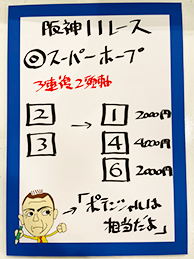 阪神11レース
◎スーパーホープ
3連複2頭軸
2 → 1 2000円
3 4 4000円
6 2000円
→「ポテンシャルは
相当だよ」